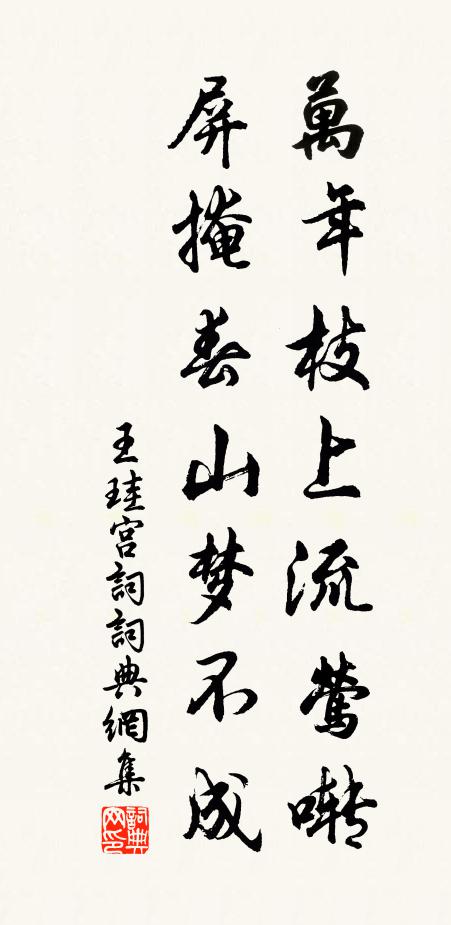 萬年枝上流鶯囀
屏掩春山梦不成
王珪宫詞詞典網集
詞典
网印